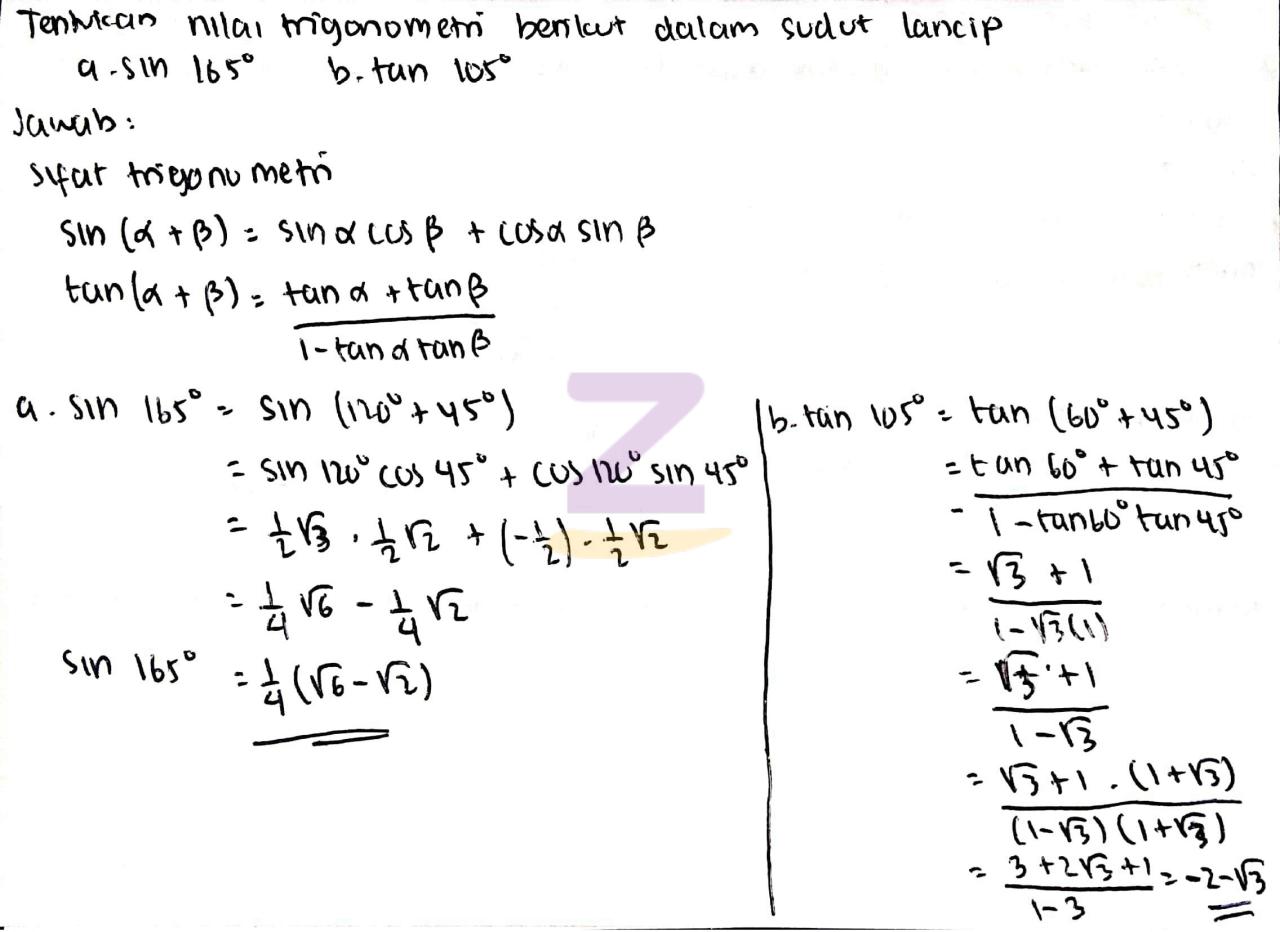 Tentukan nilai trigonometri berikut dalam sudut lancip
a. sin 165° b. tan 105°
Jawab:
Sifat trigonometri
sin (α + β) = sin α cos β + cos α sin β
tan (α + β) = tan α + tan β
1 - tan α tan β
a. sin 165° = sin (120° + 45°)
= sin 120° cos 45° + cos 120° sin 45°
= 1/2 √3 . 1/2 √2 + (-1/2) . 1/2 √2
= 1/4 √6 - 1/4 √2
sin 165° = 1/4 (√6 - √2)
b. tan 105° = tan (60° + 45°)
= tan 60° + tan 45°
- 1 - tan 60° tan 45°
= √3 + 1
1 - √3 (1)
= √3 + 1
1 - √3
= √3 + 1 . (1 + √3)
(1 - √3) (1 + √3)
= 3 + 2√3 + 1 = -2 - √3
1 - 3
Z